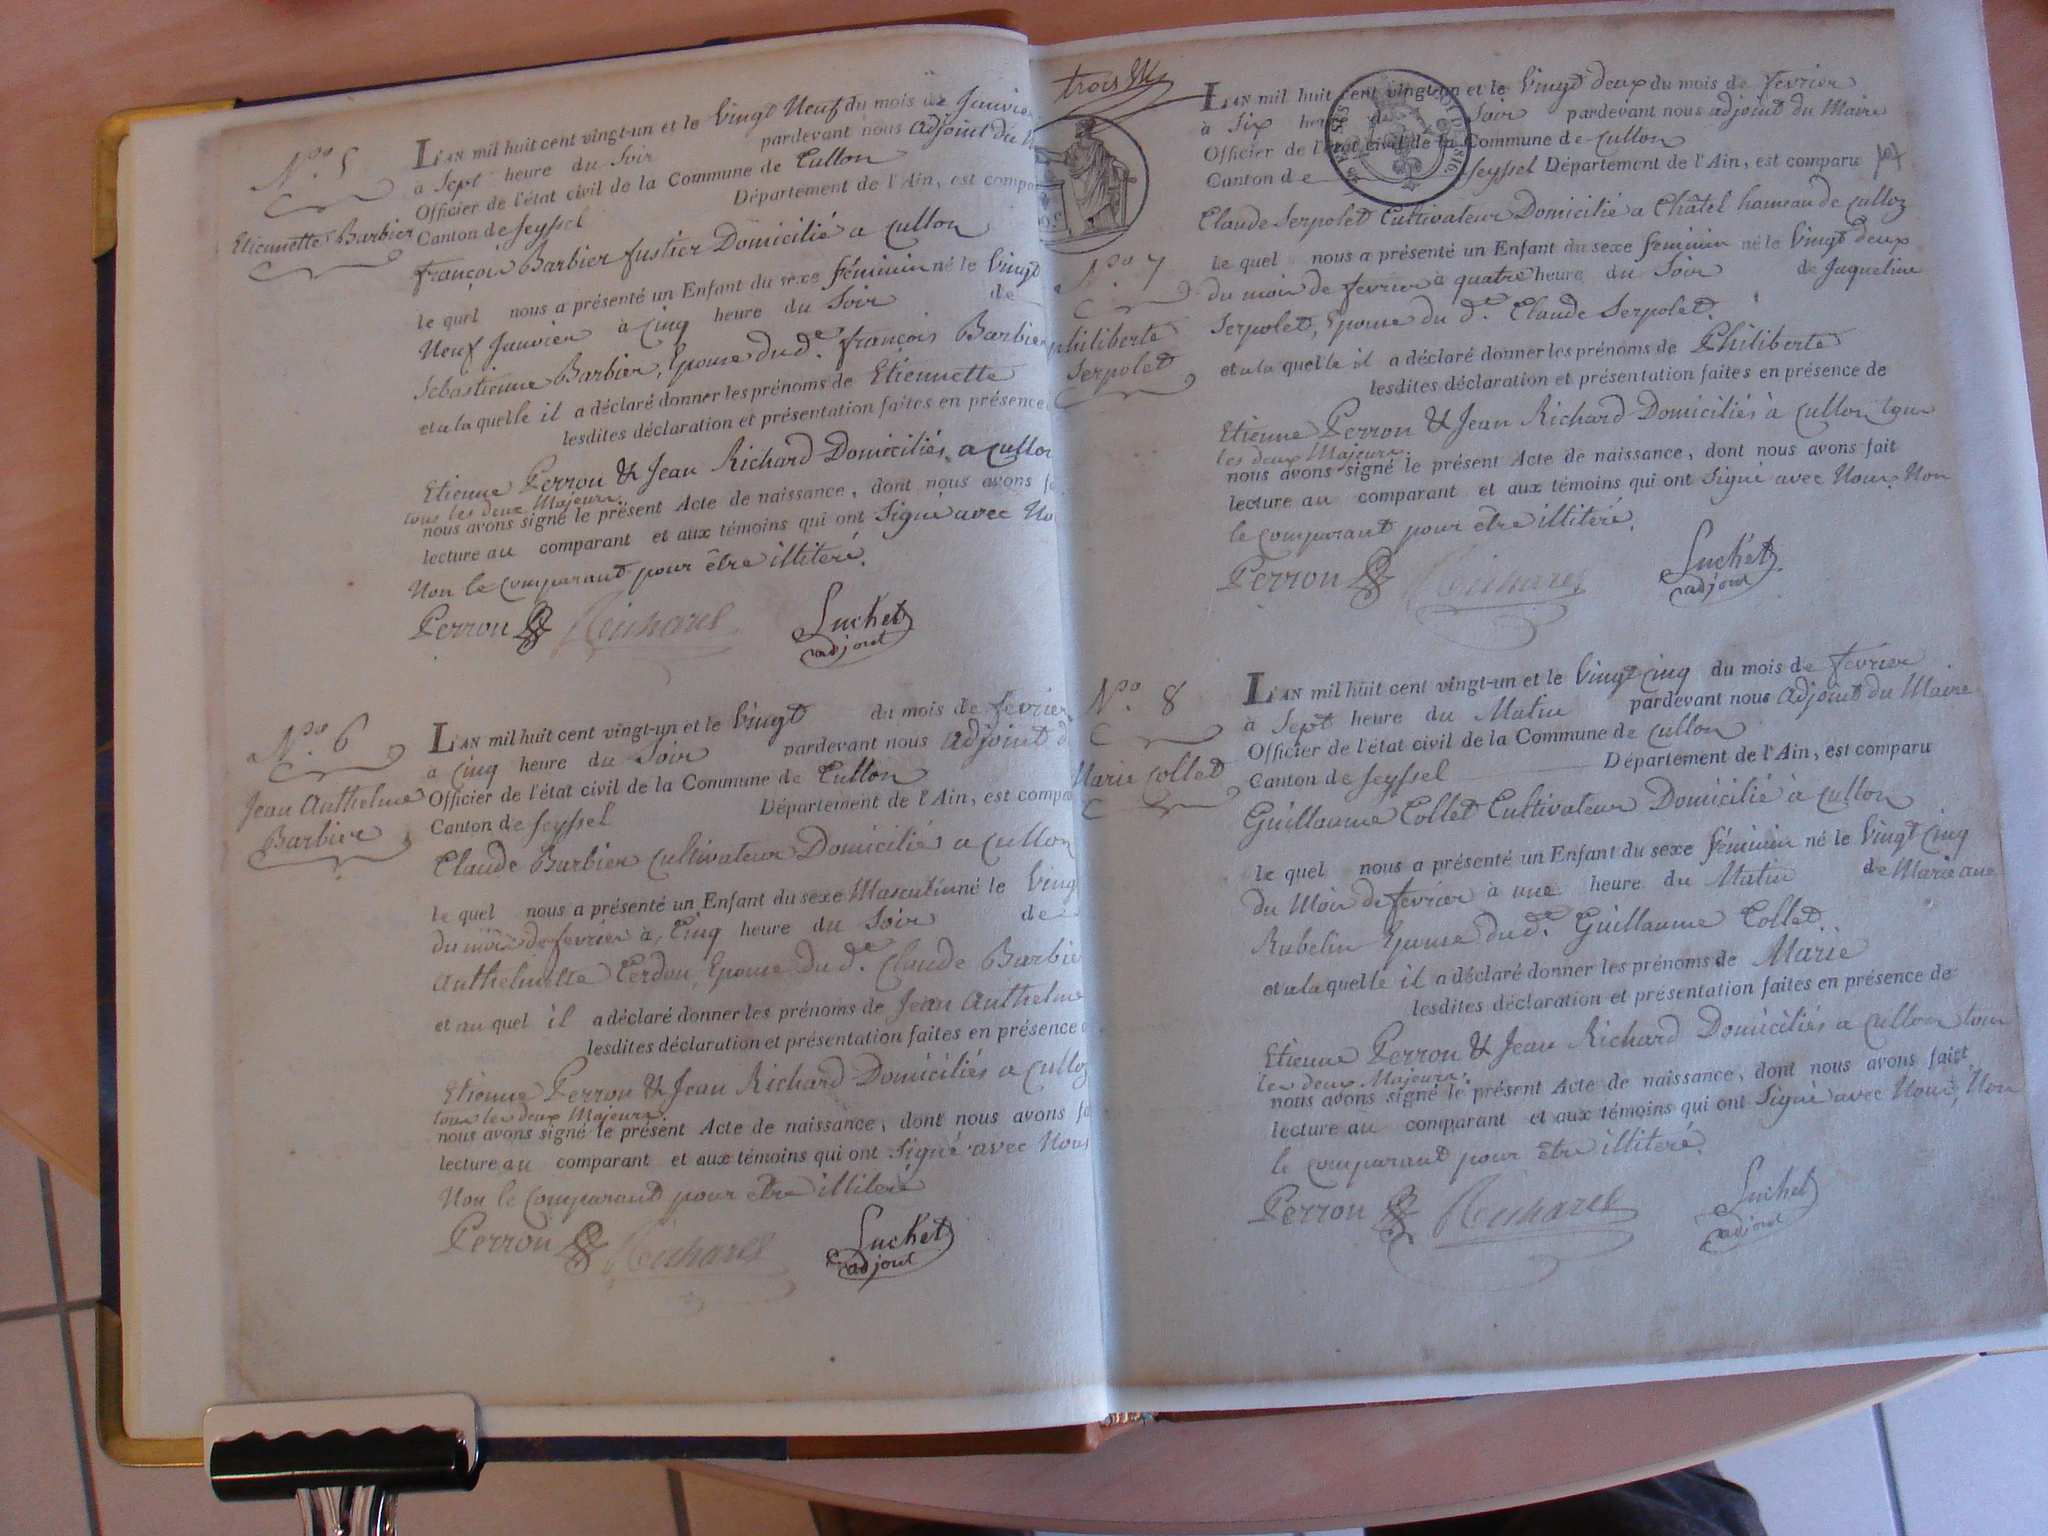 N.o 5
Etiennette Barbier
L'AN mil huit cent vingt-un et le Vingt Neuf du mois de Janvier
à Sept heure du Soir pardevant nous adjoint du
Officier de l'état civil de la Commune de Culloz
Canton de Seyssel Département de l'Ain, est compa
françois Barbier fustier Domicilié a Culloz
le quel nous a présenté un Enfant du sexe féminin né le Vingt
Neuf Janvier à Cinq heure du Soir de
Sebastienne Barbier, Epouse du d.e françois Barbier
et a la quelle il a déclaré donner les prénoms de Etiennette
lesdites déclaration et présentation faites en présence
Etienne Perron & Jean Richard Domiciliés a Culloz
tous les deux Majeurs.
nous avons signé le présent Acte de naissance, dont nous avons
lecture au comparant et aux témoins qui ont Signé avec No
Non le Comparant pour être illiteré.
Perron Richard Luchet
adjoint
N.o 6
Jean Anthelme
Barbier
L'AN mil huit cent vingt-un et le Vingt du mois de fevrier
à Cinq heure du Soir pardevant nous adjoint d
Officier de l'état civil de la Commune de Culloz
Canton de Seyssel Département de l'Ain, est compa
Claude Barbier Cultivateur Domiciliés a Culloz
le quel nous a présenté un Enfant du sexe Masculin né le Vingt
du mois de fevrier à Cinq heure du Soir de
Anthelmette Cerdon, Epouse du d.e Claude Barbie
et au quel il a déclaré donner les prénoms de Jean Anthelme
lesdites déclaration et présentation faites en présence
Etienne Perron & Jean Richard Domiciliés a Culloz
tous les deux Majeurs.
nous avons signé le présent Acte de naissance, dont nous avons
lecture au comparant et aux témoins qui ont Signé avec Nous
Non le Comparant pour être illiteré
Perron Richard Luchet
adjoint
trois
N.o 7
Philiberte
Serpolet
L'AN mil huit cent vingt-un et le Vingt deux du mois de fevrier
à Six heure du Soir pardevant nous adjoint du Maire
Officier de l'état civil de la Commune de Culloz
Canton de Seyssel Département de l'Ain, est comparu
Claude Serpolet Cultivateur Domicilié a Châtel hameau de Culloz
le quel nous a présenté un Enfant du sexe feminin né le Vingt deux
du mois de fevrier à quatre heure du Soir de Jaqueline
Serpolet, Epouse du d.e Claude Serpolet.
et a la quelle il a déclaré donner les prénoms de Philiberte
lesdites déclaration et présentation faites en présence de
Etienne Perron & Jean Richard Domiciliés à Culloz tous
les deux Majeurs.
nous avons signé le présent Acte de naissance, dont nous avons fait
lecture au comparant et aux témoins qui ont Signé avec Nous, Non
le Comparant pour être illiteré.
Perron Richard Luchet
adjoint
N.o 8
Marie Collet
L'AN mil huit cent vingt-un et le Vingt Cinq du mois de fevrier
à Sept heure du Matin pardevant nous adjoint du Maire
Officier de l'état civil de la Commune de Culloz
Canton de Seyssel Département de l'Ain, est comparu
Guillaume Collet Cultivateur Domicilié à Culloz
le quel nous a présenté un Enfant du sexe féminin né le Vingt Cinq
du Mois de fevrier à une heure du Matin de Marie ane
Rubelin Epouse du d.e Guillaume Collet.
et a la quelle il a déclaré donner les prénoms de Marie
lesdites déclaration et présentation faites en présence de
Etienne Perron & Jean Richard Domiciliés a Culloz tous
les deux Majeurs.
nous avons signé le présent Acte de naissance, dont nous avons fait
lecture au comparant et aux témoins qui ont Signé avec Nous, Non
le Comparant pour être illiteré.
Perron Richard Luchet
adjoint